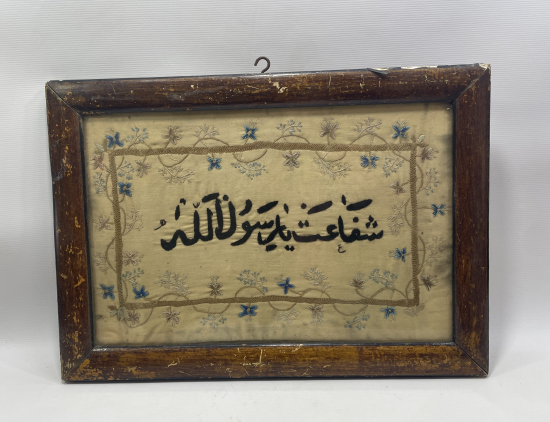 شفاعت یا رسول الله